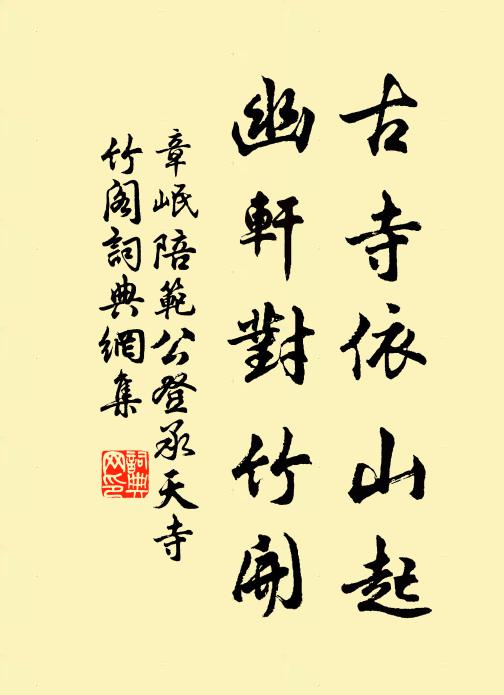 古寺依山起
幽軒對竹開
章岷陪範公登承天寺
竹閣詞典網集
詞典網印